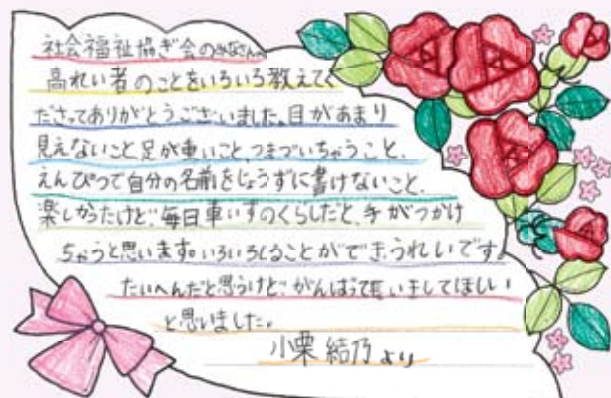 社会福祉協ぎ会のみなさんへ
高れい者のことをいろいろ教えてく
ださってありがとうございました。目があまり
見えないこと、足が重いこと、つまづいちゃうこと、
えんぴつで自分の名前をじょうずに書けないこと、
楽しかったけど、毎日車いすのくらしだと、手がつかけ
ちゃうと思います。いろいろしることができ、うれしいです。
たいへんだと思うけど、がんばって長いきしてほしい
と思いました。
小栗 結乃より